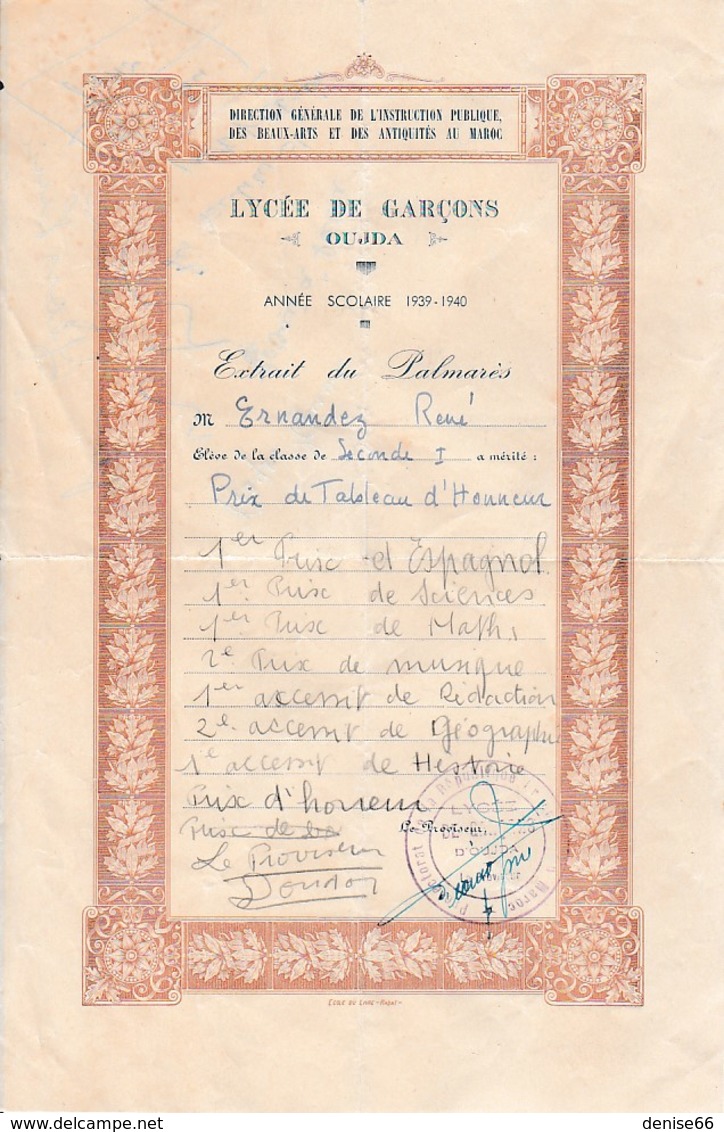 DIRECTION GÉNÉRALE DE L'INSTRUCTION PUBLIQUE,
DES BEAUX-ARTS ET DES ANTIQUITÉS AU MAROC
LYCÉE DE GARÇONS
OUJDA
ANNÉE SCOLAIRE 1939-1940
Extrait du Palmarès
M Ernandez René
Elève de la classe de Seconde I a mérité :
Prix de Tableau d'Honneur
1er Prix d'Espagnol
1er Prix de Sciences
1er Prix de Maths
2e Prix de musique
1er accessit de Rédaction
2e accessit de Géographie
1e accessit de Histoire
Prix d'honeur
Prix de
Le Proviseur,
Le Proviseur
LYCÉE
D'OUJDA
Maroc
ECOLE DU LIVRE - RABAT -
denise66